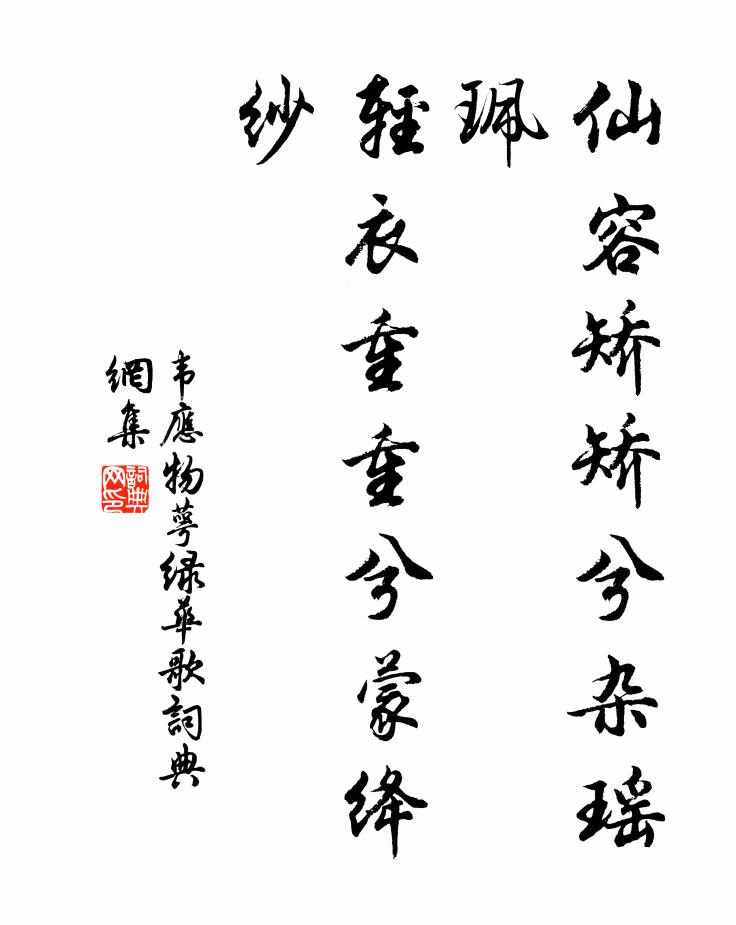 仙容矫矫兮杂瑶
珮
輕衣重重兮蒙绛
纱
韦應物萼绿華歌詞典
網集
詞典
网印